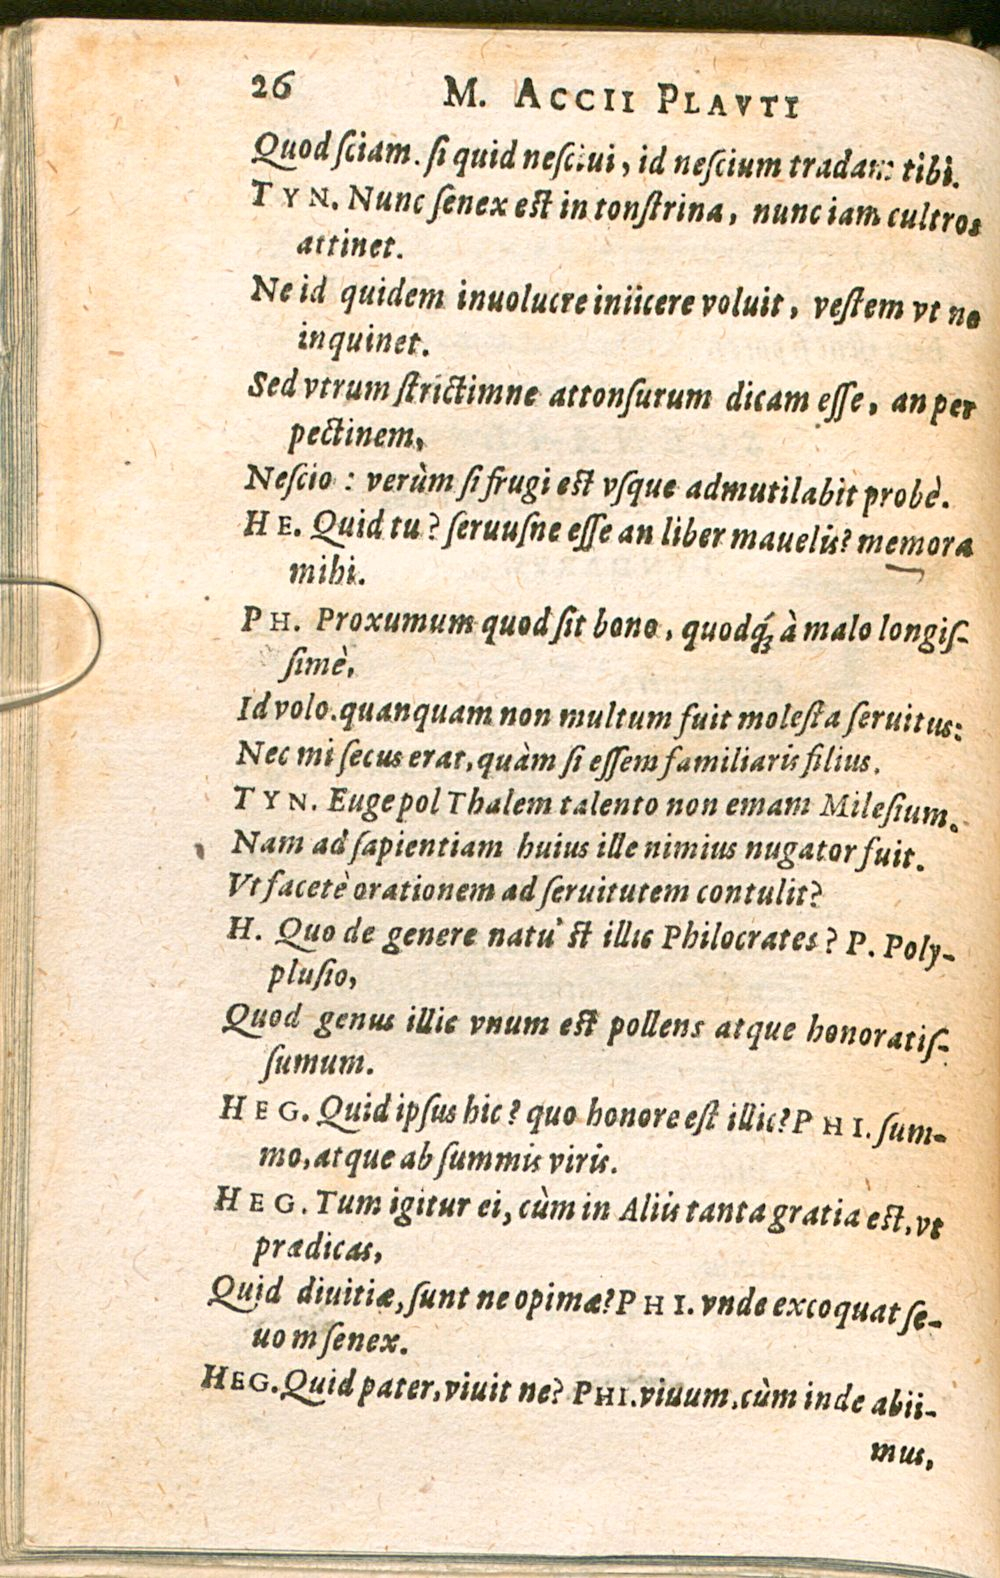 26 M. ACCII PLAVTI
Quod ſciam. ſi quid neſciui, id neſcium tradam tibi.
TYN. Nunc ſenex eſt in tonſtrina, nunc iam cultros
attinet.
Ne id quidem inuolucre iniicere voluit, veſtem vt ne
inquinet.
Sed vtrum ſtrictimne attonſurum dicam eſſe, an per
pectinem,
Neſcio : verùm ſi frugi eſt vſque admutilabit probè.
HE. Quid tu? ſeruuſne eſſe an liber mauelis? memora
mihi.
PH. Proxumum quod ſit bono, quodq́; à malo longiſ-
ſimè,
Id volo. quanquam non multum fuit moleſta ſeruitus:
Nec mi ſecus erat, quàm ſi eſſem familiaris filius.
TYN. Euge pol Thalem talento non emam Mileſium.
Nam ad ſapientiam huius ille nimius nugator fuit.
Vt facetè orationem ad ſeruitutem contulit?
H. Quo de genere natu' ſt illic Philocrates? P. Poly-
pluſio,
Quod genus illic vnum eſt pollens atque honoratiſ-
ſumum.
HEG. Quid ipſus hic? quo honore eſt illic? PHI. ſum-
mo, atque ab ſummis viris.
HEG. Tum igitur ei, cùm in Aliis tanta gratia eſt, vt
prædicas,
Quid diuitiæ, ſunt ne opimæ? PHI. vnde excoquat ſe-
uom ſenex.
HEG. Quid pater, viuit ne? PHI. viuum, cùm inde abii-
mus,